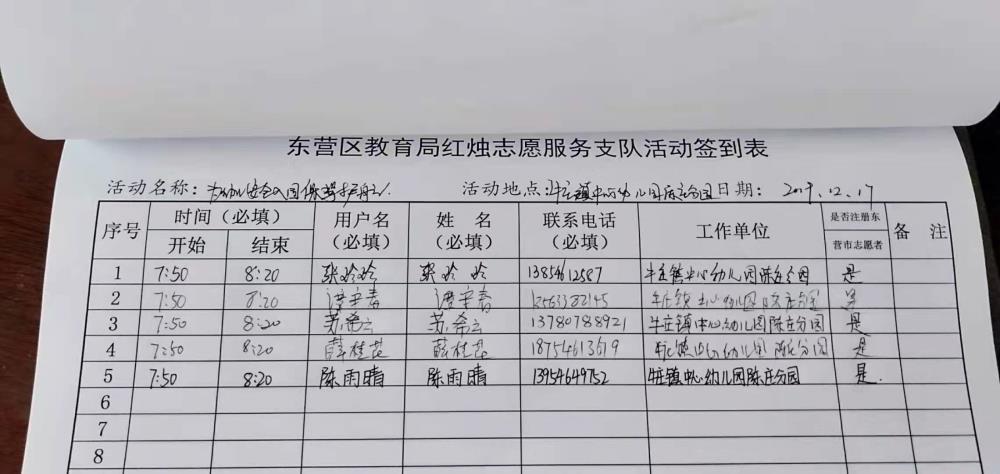 东营区教育局红烛志愿服务支队活动签到表
活动名称：为幼儿安全入园保驾护航 活动地点：牛庄镇中心幼儿园陈庄分园 日期：2019.12.17
序号 时间（必填） 用户名（必填） 姓名（必填） 联系电话（必填） 工作单位 是否注册东营市志愿者 备注
开始 结束
1 7:50 8:20 张玲玲 张玲玲 13854612587 牛庄镇中心幼儿园陈庄分园 是
2 7:50 8:20 牛庄镇中心幼儿园陈庄分园 是
3 7:50 8:20 苏希云 苏希云 13780788921 牛庄镇中心幼儿园陈庄分园 是
4 7:50 8:20 薛桂花 薛桂花 18754613619 牛庄镇中心幼儿园陈庄分园 是
5 7:50 8:20 陈雨晴 陈雨晴 13954649752 牛庄镇中心幼儿园陈庄分园 是.
6
7
8